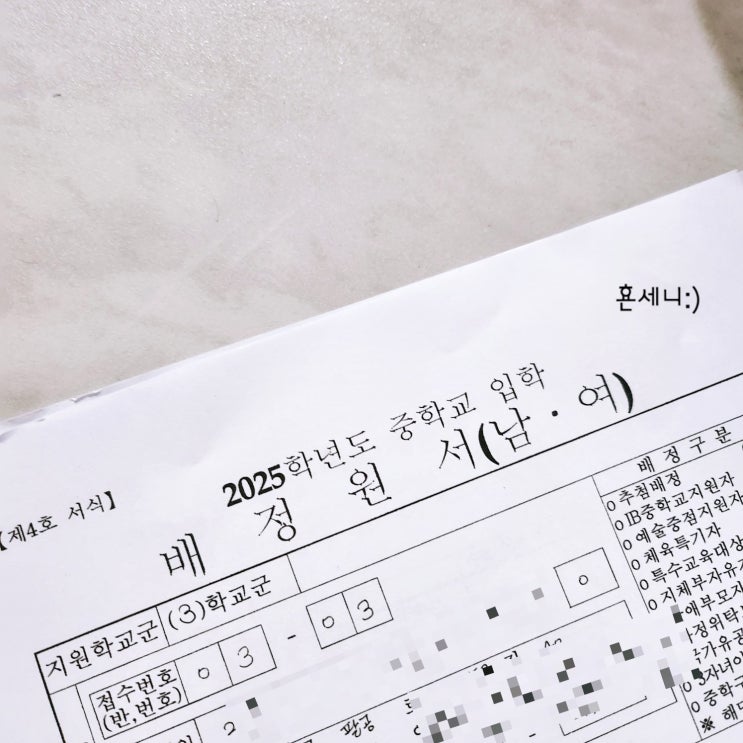 흔세니:)
【제4호 서식】
2025학년도 중학교 입학
배 정 원 서(남·여)
지원학교군 (3)학교군
접수번호
(반,번호)
0 3 - 0 3
0
2
팔공
배 정 구 분
o 추첨배정
o IB중학교지원자
o 예술중점지원자
o 체육특기자
o 특수교육대상
o 지체부자유
애부모자
정위탁
가유공
자녀이
o 중학구
※ 해